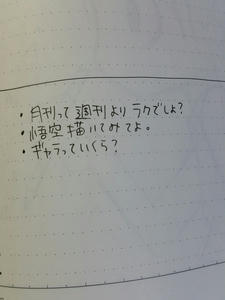 ・月刊って週刊よりラクでしょ?
・悟空描いてみてよ。
・ギャラっていくら?